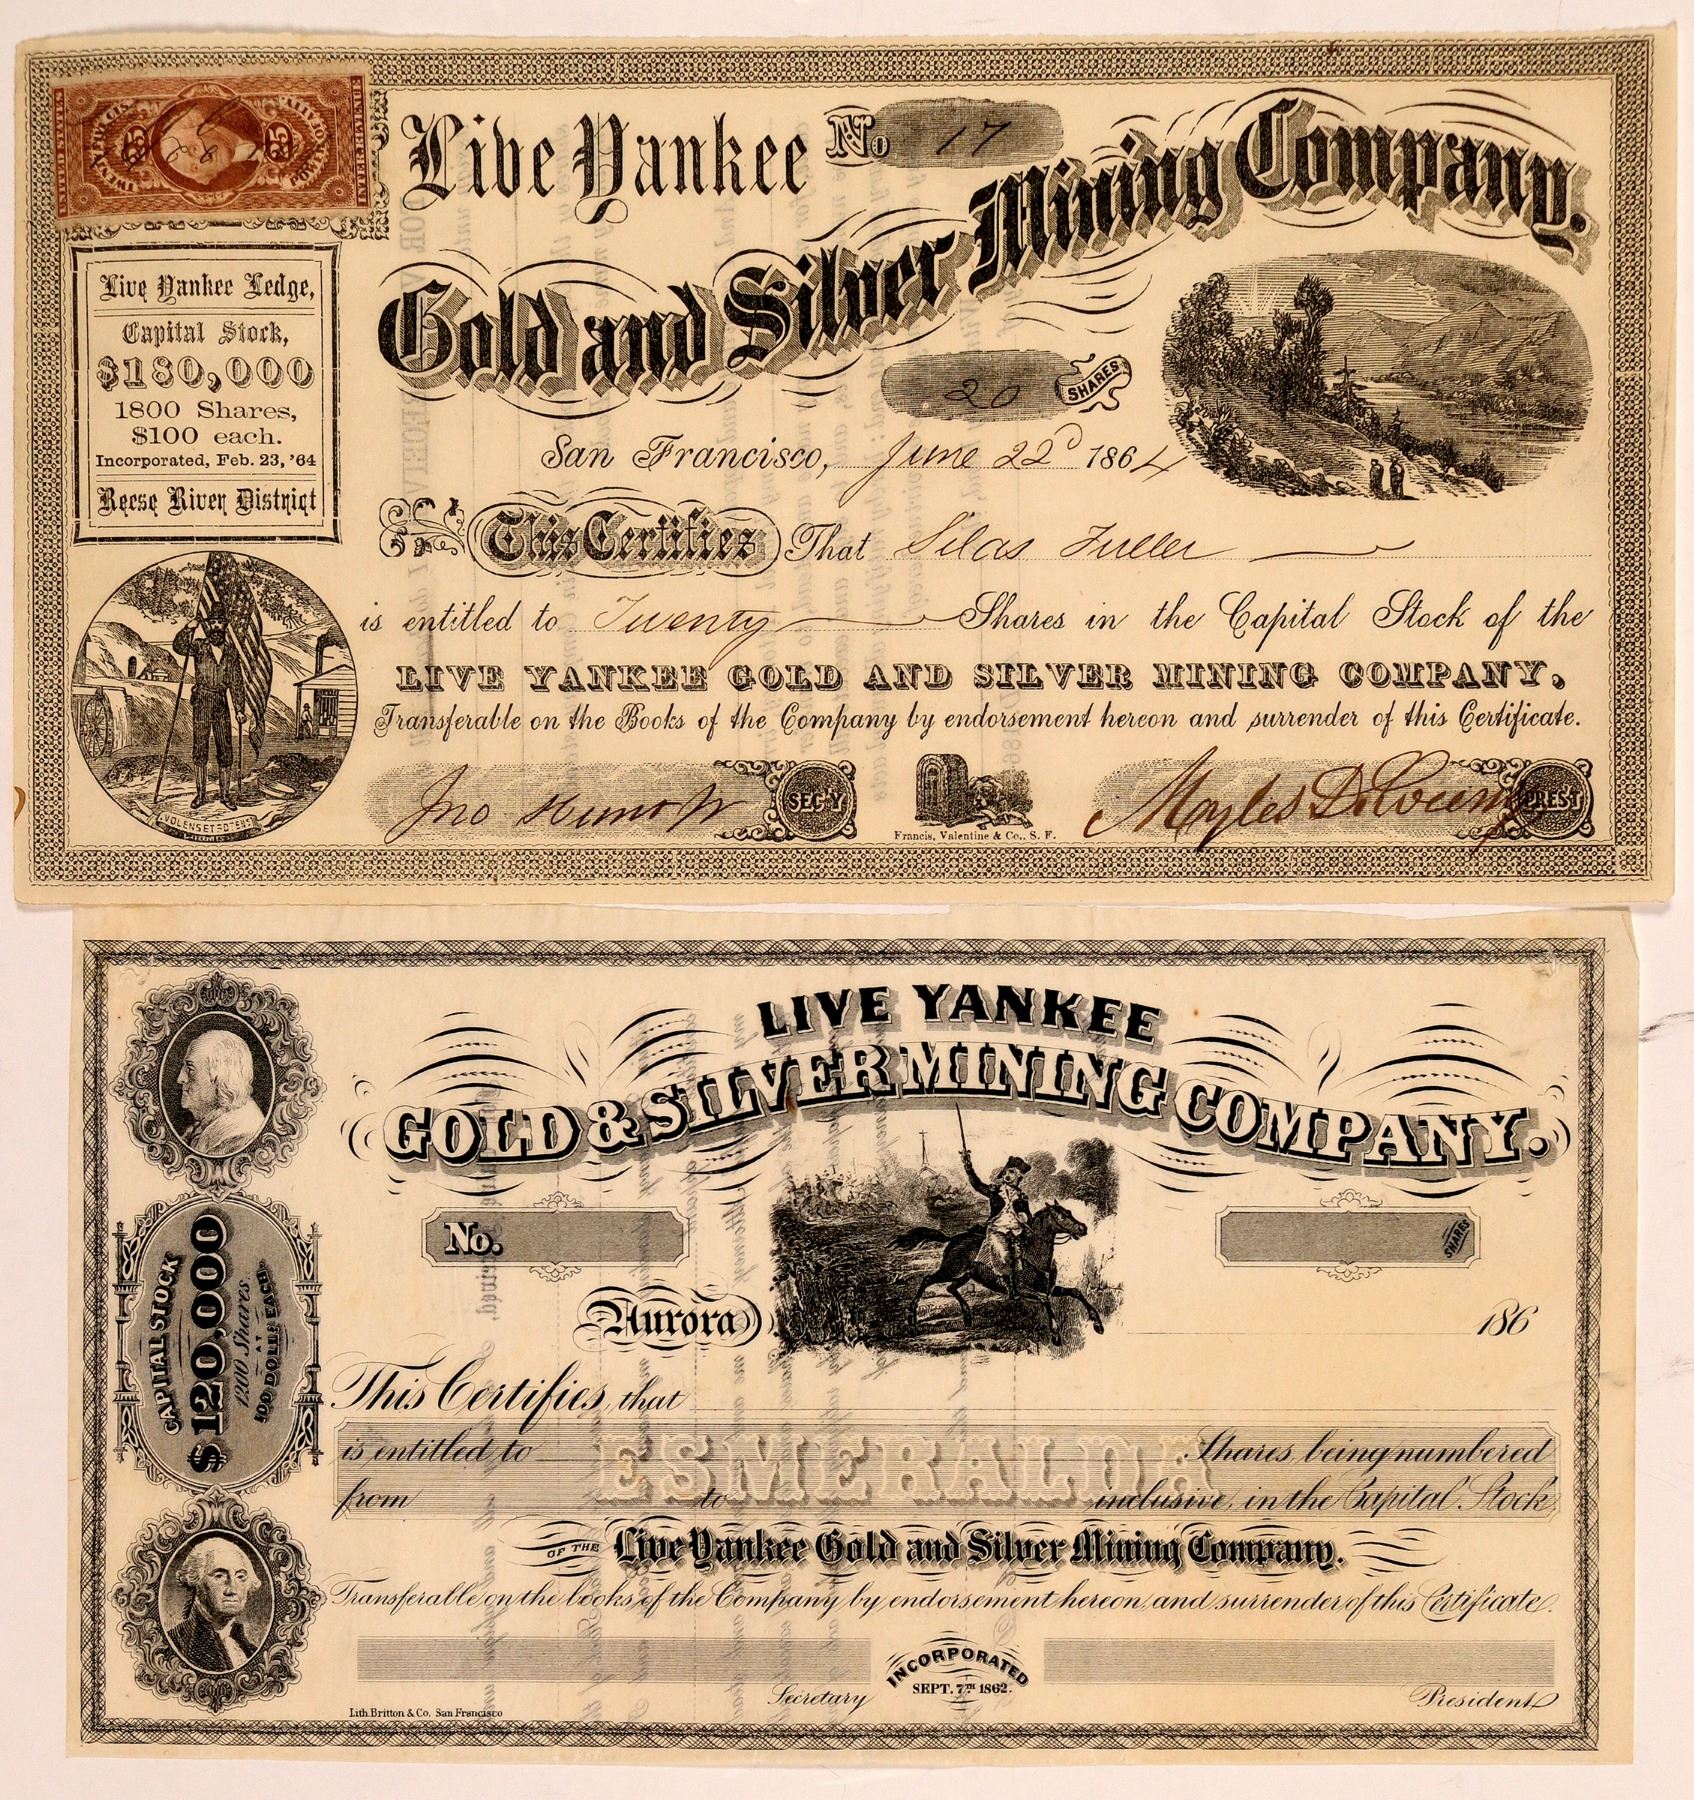 UNITED STATES
TWENTY FIVE CTS.
25
25
POWER OF AT'Y
INTER. REVENUE
Live Yankee No 17
Gold and Silver Mining Company.
Live Yankee Ledge,
Capital Stock,
$180,000
1800 Shares,
$100 each.
Incorporated, Feb. 23, '64
Reese River District
20 SHARES
San Francisco, June 22d 1864
This Certifies That Silas Fuller
is entitled to Twenty Shares in the Capital Stock of the
LIVE YANKEE GOLD AND SILVER MINING COMPANY,
Transferable on the Books of the Company by endorsement hereon and surrender of this Certificate.
VOLENS ET POTENS
Jno Hunt Jr SEC'Y
Francis, Valentine & Co., S. F.
PREST
LIVE YANKEE
GOLD & SILVER MINING COMPANY.
No.
SHARES
Aurora 186
CAPITAL STOCK
$120,000
1200 Shares
AT
100 DOLLS EACH.
This Certifies, that
is entitled to Shares, being numbered
ESMERALDA
from to inclusive, in the Capital Stock
OF THE Live Yankee Gold and Silver Mining Company.
Transferable on the books of the Company by endorsement hereon and surrender of this Certificate.
INCORPORATED
SEPT. 7TH 1862.
Secretary President
Lith. Britton & Co. San Francisco